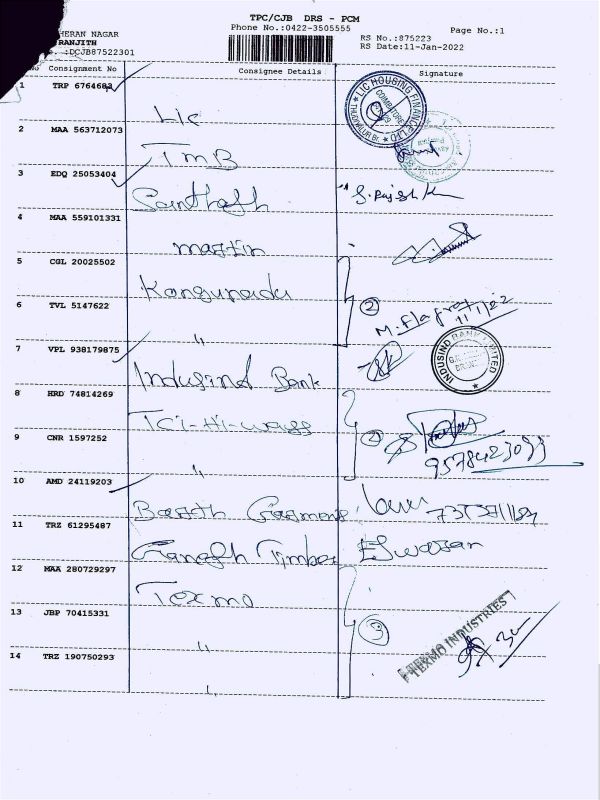 TPC/CJB DRS - PCM
Phone No.:0422-3505555
Page No.:1
HERAN NAGAR
RANJITH
.:DCJB87522301
RS No.:875223
RS Date:11-Jan-2022
No Consignment No Consignee Details Signature
1 TRP 6764683 Lic
LIC HOUSING FINANCE LTD
COIMBATORE
2 MAA 563712073 TMB
3 EDQ 25053404 Santhosh
4 MAA 559101331 Martin
5 CGL 20025502 Kongunadu 2
6 TVL 5147622 "
11/1/22
7 VPL 938179875 Indusind Bank
INDUSIND BANK LIMITED
8 HRD 74814269 Tci-Hi-ways 2
9578423093
9 CNR 1597252 "
10 AMD 24119203
11 TRZ 61295487 Ganesh Timber Eswaran
12 MAA 280729297 Texmo 3
13 JBP 70415331 "
TEXMO INDUSTRIES
14 TRZ 190750293 "